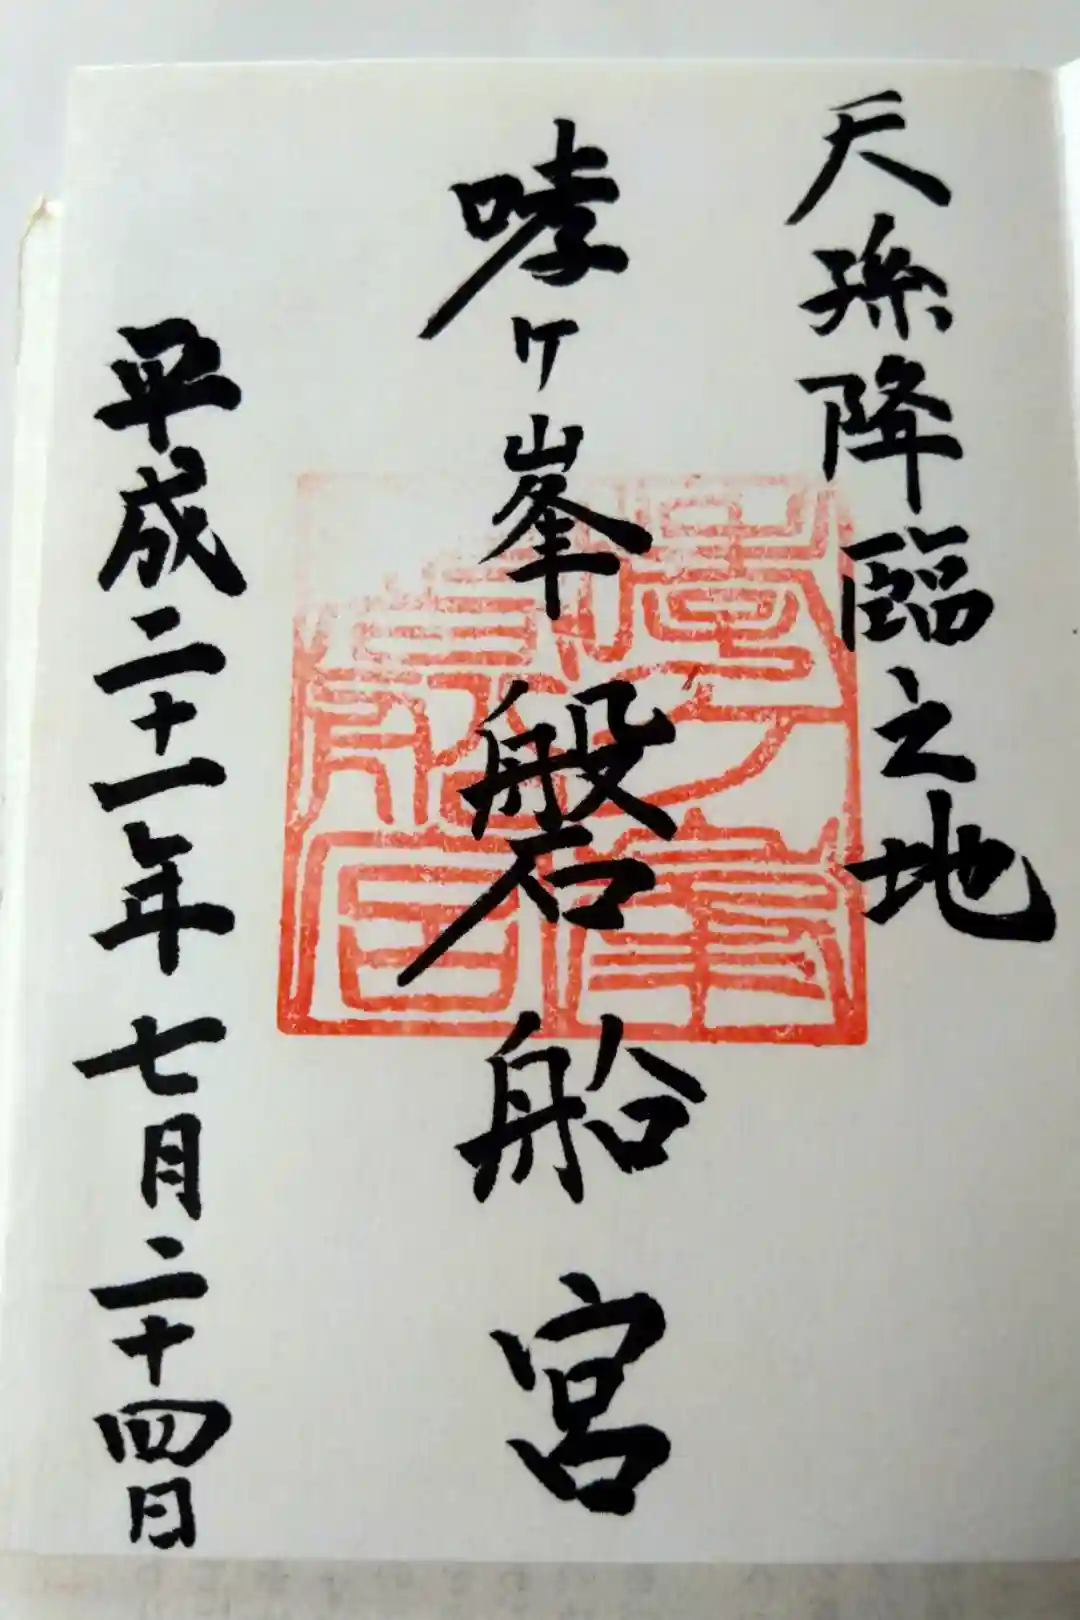 天孫降臨之地
哮ヶ峯磐船宮
平成二十一年七月二十四日